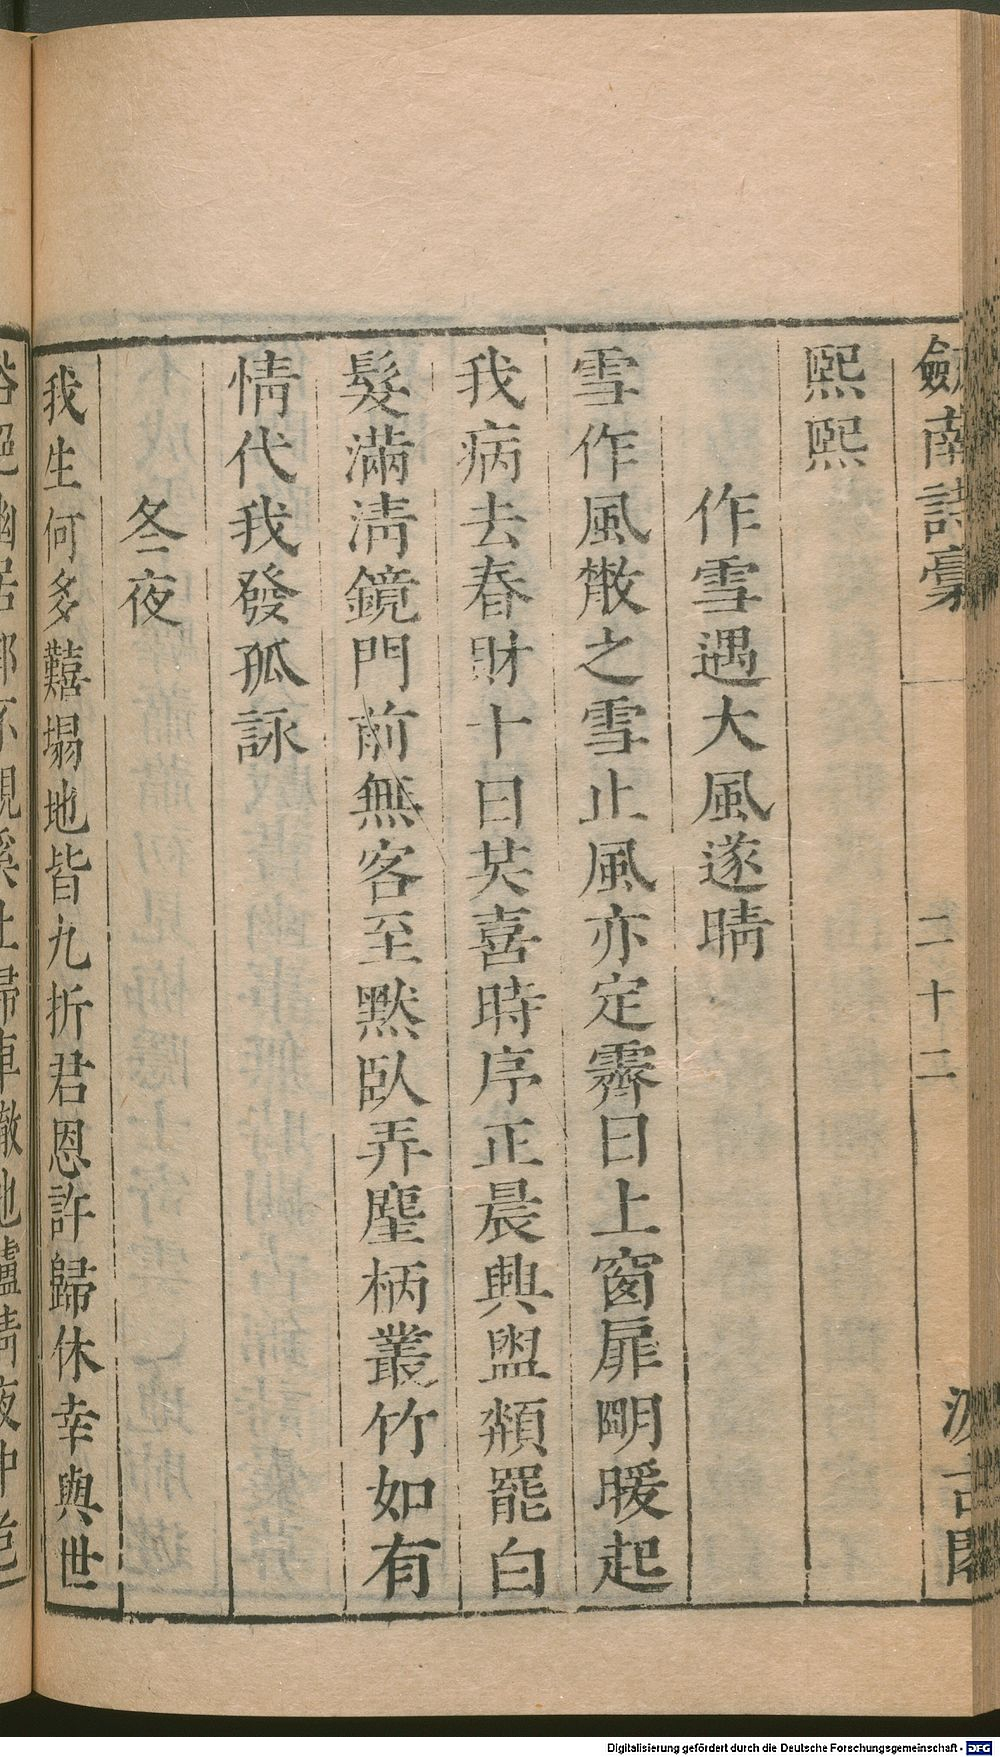 劍南詩稾 二十二 汲古閣
熙熙
作雪遇大風遂晴
雪作風散之雪止風亦定霽日上窗扉明暖起
我病去春財十日芡喜時序正晨興盥頮罷白
髮滿清鏡門前無客至默臥弄麈柄叢竹如有
情代我發孤詠
冬夜
我生何多囏塌地皆九折君恩許歸休幸與世
絕幽居都不
歸車轍地爐清夜中
Digitalisierung gefördert durch die Deutsche Forschungsgemeinschaft - DFG